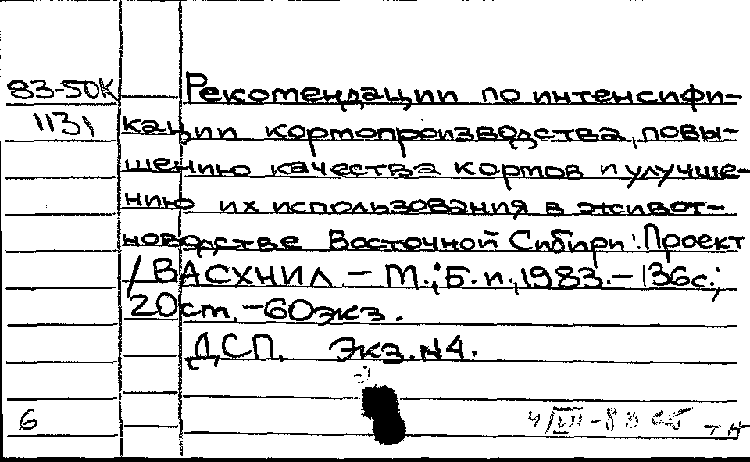 83-50К Рекомендации по интенсифи-
1131 кации кормопроизводства, повы-
шению качества кормов и улучше-
нию их использования в живот-
новодстве Восточной Сибири: Проект
/ВАСХНИЛ. - М.; Б.и., 1983. - 136с.;
20см. - 60экз.
ДСП. Экз.№4.
6